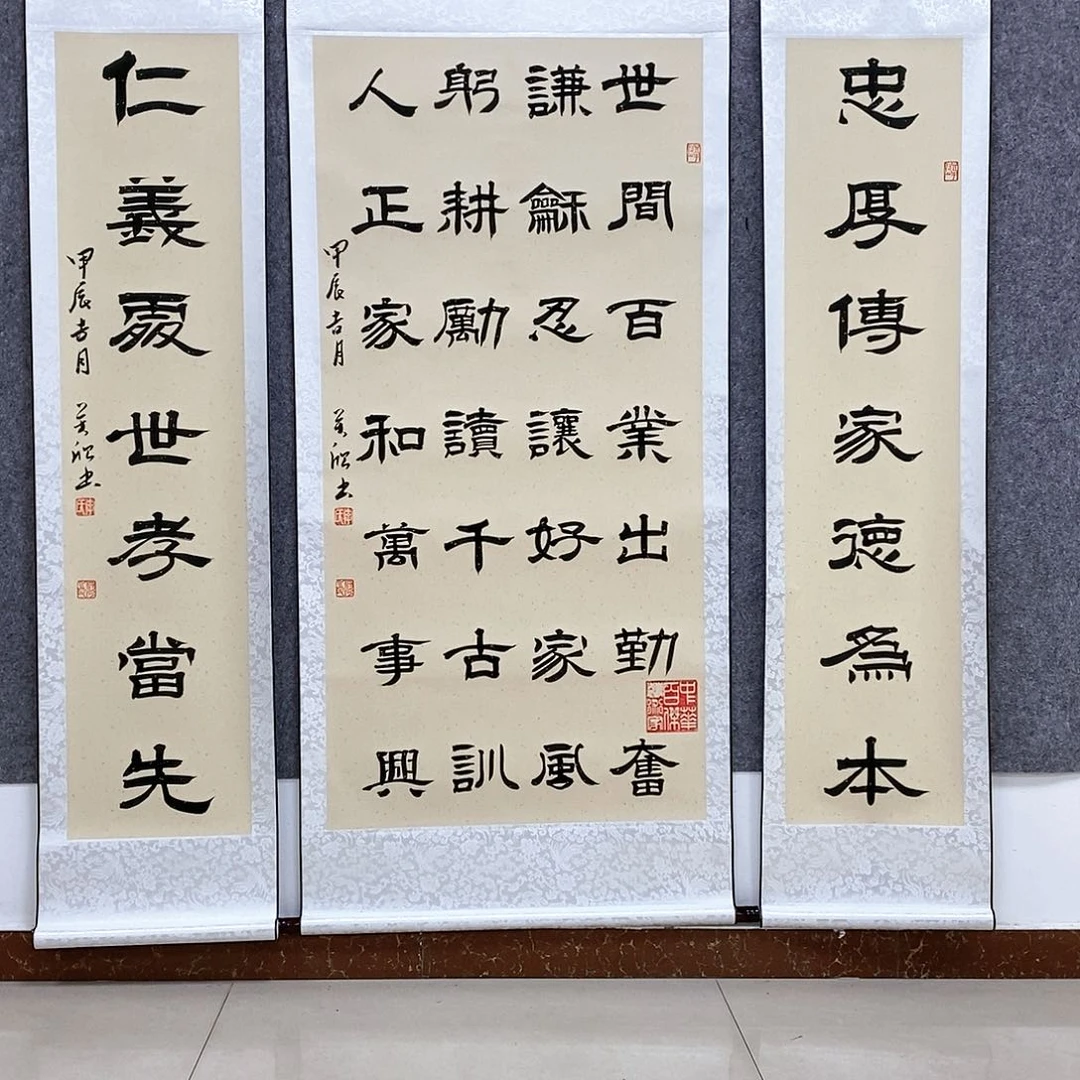 忠厚傳家德為本
世間百業出勤奮
謙龢忍讓好家風
躬耕勵讀千古訓
人正家和萬事興
甲辰吉月
書
中華
百傑
仁義處世孝當先
甲辰吉月
書